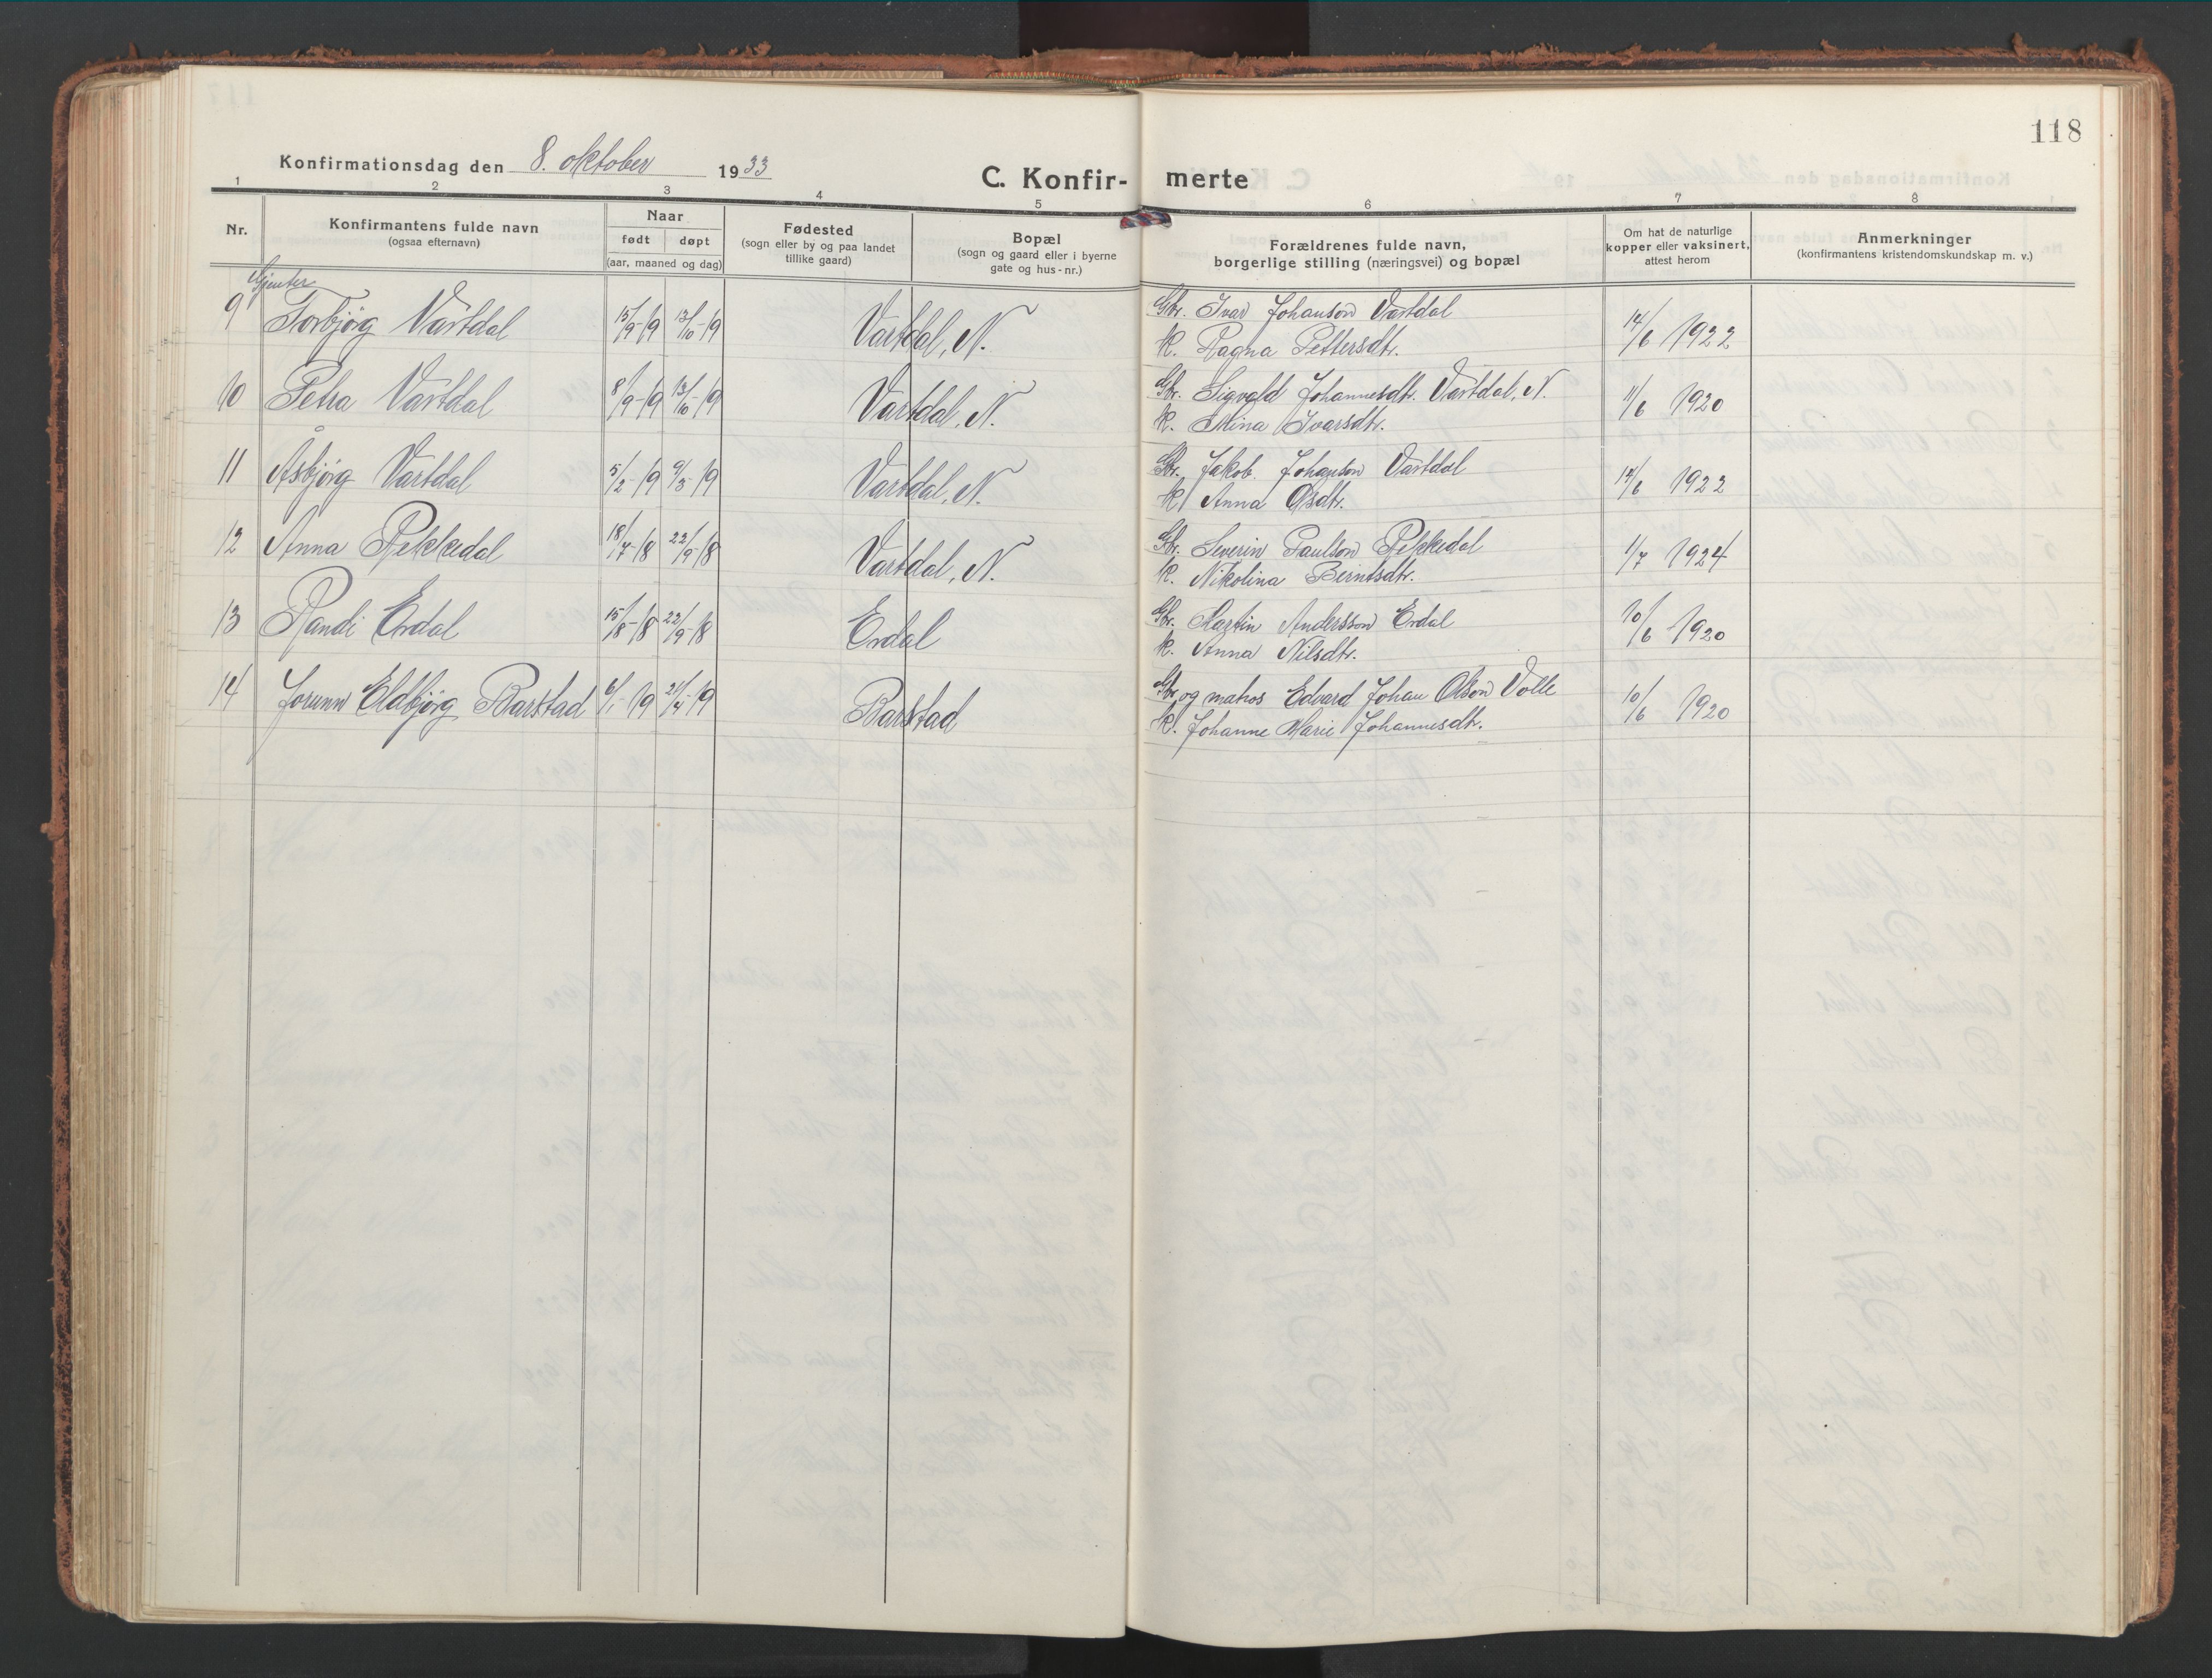 118
Konfirmationsdag den 8. oktober 1933
C. Konfir- merte
1 2 3 4 5 6 7 8
Nr.
Konfirmantens fulde navn
(ogsaa efternavn)
Naar
født døpt
(aar, maaned og dag)
Fødested
(sogn eller by og paa landet
tillike gaard)
Bopæl
(sogn og gaard eller i byerne
gate og hus-nr.)
Forældrenes fulde navn,
borgerlige stilling (næringsvei) og bopæl
Om hat de naturlige
kopper eller vaksinert,
attest herom
Anmerkninger
(konfirmantens kristendomskundskap m. v.)
Gjenter
9 Torbjørg Vartdal 15/9-19 13/10-19 Vartdal, N. Gbr. Ivar Johanson Vartdal 14/6 1922
K. Ragna Pettersdtr.
10 Petra Vartdal 8/9-19 13/10-19 Vartdal, N. Gbr. Sigvald Johannesdtr. Vartdal, N. 11/6 1920
K. Mina Ivarsdtr.
11 Åsbjørg Vartdal 5/2-19 9/3-19 Vartdal, N. Gbr. Jakob Johanson Vartdal 14/6 1922
K. Anna Osdtr.
12 Anna Rekkedal 18/7-18 22/9-18 Vartdal, N. Gbr. Severin Paulson Rekkedal 1/7 1924
K. Nikolina Berntsdtr.
13 Randi Erdal 15/8-18 22/9-18 Erdal Gbr. Martin Andersson Erdal 10/6 1920
K. Anna Nilsdtr.
14 Jorunn Eldbjørg Barstad 6/1-19 21/4-19 Barstad Gbr og matros Edvard Johan Olson Volle 10/6 1920
K. Johanne Marie Johannesdtr.